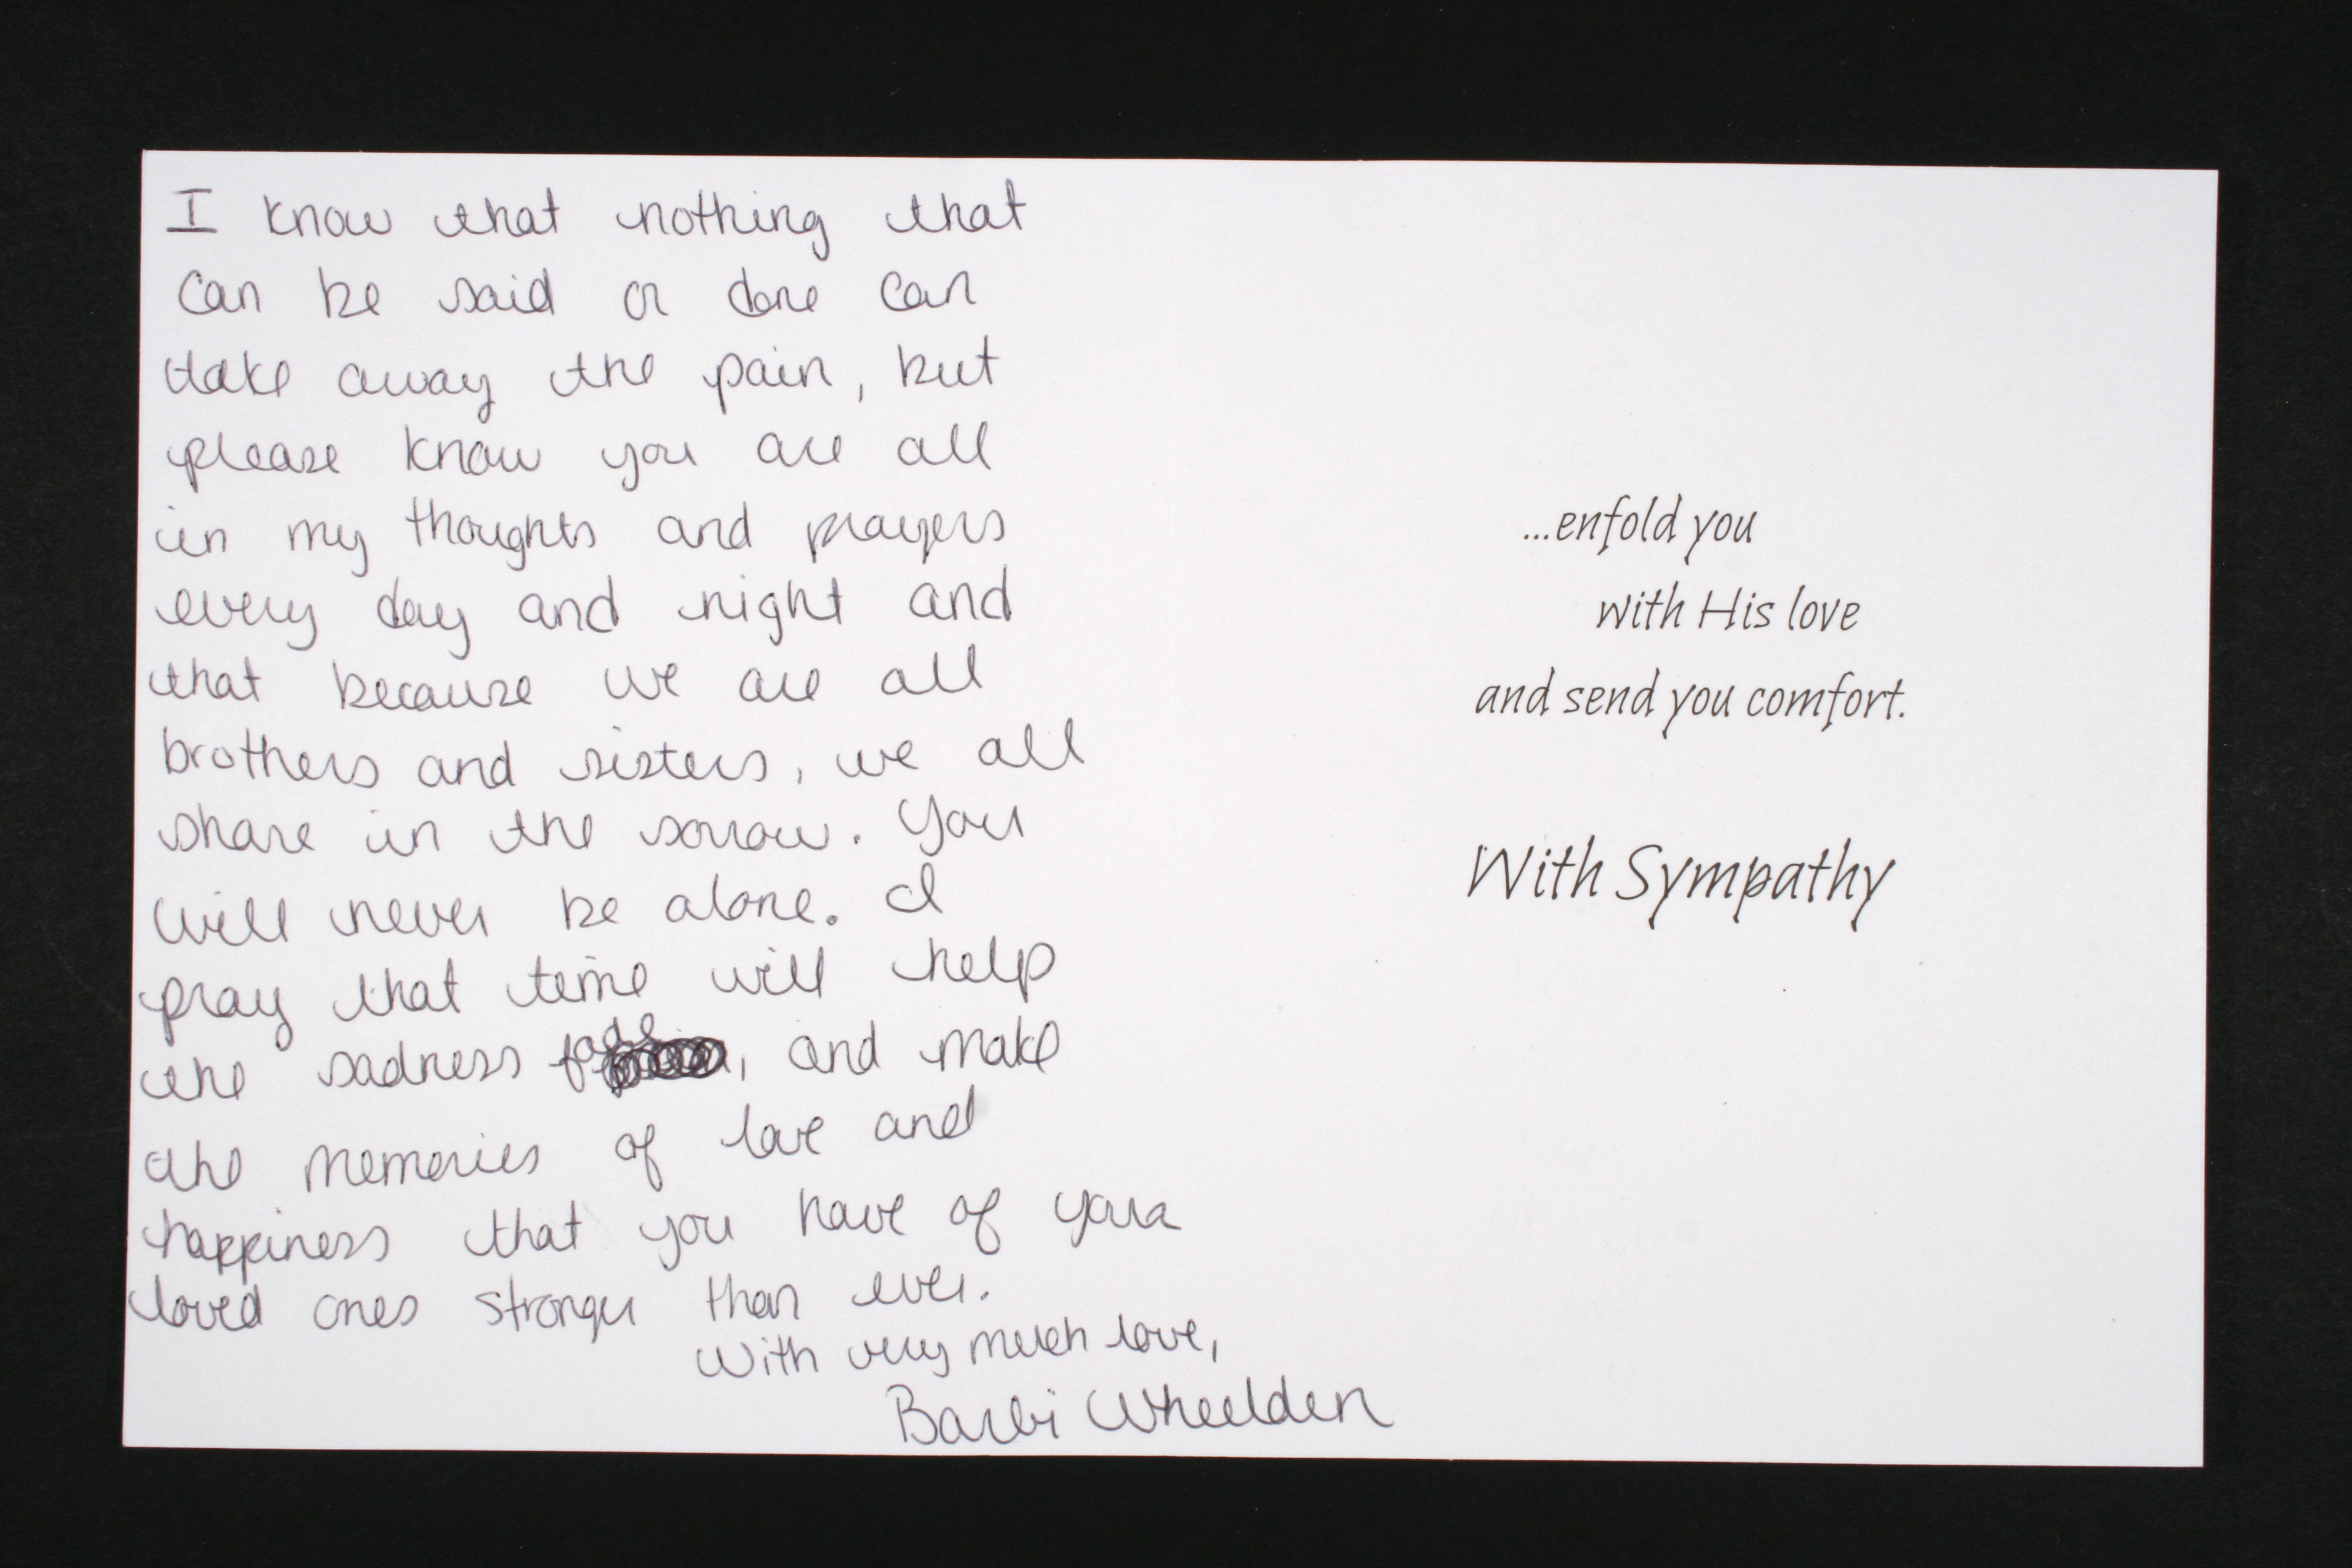 I know that nothing that
can be said or done can
take away the pain, but
please know you are all
in my thoughts and prayers
every day and night and
that because we are all
brothers and sisters, we all
share in the sorrow. You
will never be alone. I
pray that time will help
the sadness fade, and make
the memories of love and
happiness that you have of your
loved ones stronger than ever.
With very much love,
Barbi Wheelden
...enfold you
with His love
and send you comfort.
With Sympathy